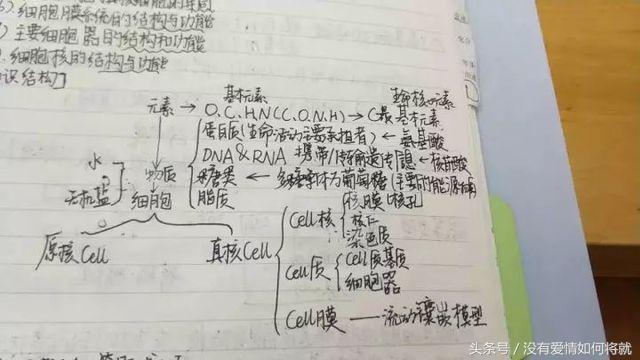 细胞膜系统的结构与功能
主要细胞器的结构和功能
细胞核的结构与功能
识结构]
基本元素
元素 → O.C.H.N(C.O.N.H) → C最基本元素
蛋白质(生命活动主要承担者) ← 氨基酸
DNA&RNA 携带/传递遗传信息 ← 核苷酸
水
物质
糖类 ← 多糖单体为葡萄糖(主要的能源物质)
无机盐
脂质
细胞
原核Cell
真核Cell
Cell核
核膜(核孔
核仁
染色质
Cell质
Cell质基质
细胞器
Cell膜 —— 流动镶嵌模型
头条号/没有爱情如何将就